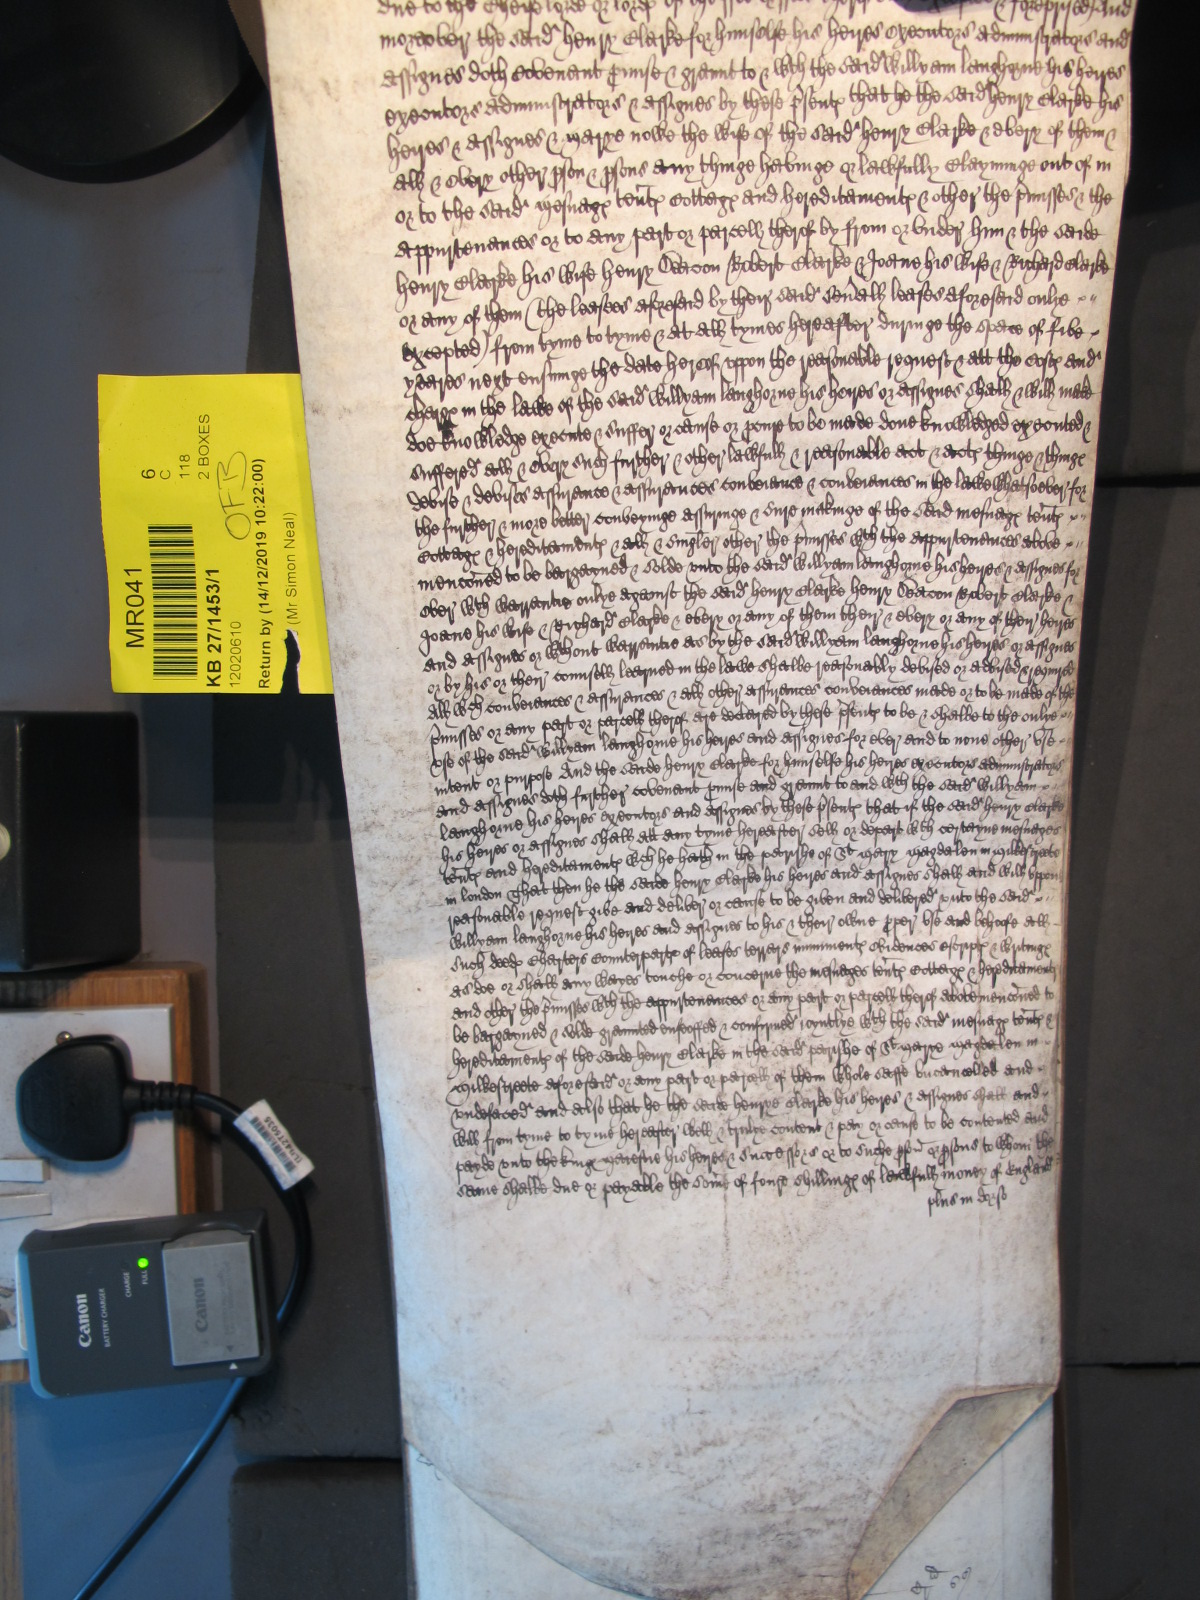 moreover the said henry Clarke for himselfe his heires executors administrators and
assignes doth Covenant pmise & graunt to & wth the said Willyam langhorne his heires
executors administrators & assignes by these psentes that he the said henry Clarke his
heires & assignes & marye nowe the wife of the said henry Clarke & every of them &
all & every other pson & psons any thinge havinge or lawfully Clayminge out of in
or to the said mesuages tentes Cottages and hereditamentes & other the pmisses & the
appurtenances or to any part or parcell therof by from or under him & the saide
henry Clarke his wife henry Robert Clarke & Joane his wife & Richard Clarke
or any of them (the leases aforesaid by their said sevall leases aforesaid onlye
excepted) from tyme to tyme & at all tymes hereafter duringe the space of five
yeares next ensuinge the date herof uppon the reasonable request & att the Costes and
charges in the lawe of the said Willyam langhorne his heires or assignes shall & will make
doe knowledge execute & suffer or cause or pcure to be made done knowledged executed &
suffered all & every such further & other lawfull & reasonable act & actes thinge & thinges
devise & devises assurance & assurances conveiance & conveiances in the lawe whatsoever for
the further & more better conveyinge assuringe & sure makinge of the said mesuages tentes
Cottages & hereditamentes & all & singler other the pmisses wth the appurtenances above
mencioned to be bargayned & solde unto the said Willyam langhorne his heires & assignes for
ever wth warrantie onlye against the said henry Clarke henry Robert Clarke &
Joane his wife & Richard Clarke & every or any of them their & every or any of their heires
and assignes or wthout warrantie as by the said Willyam langhorne his heires or assignes
or by his or their counsell learned in the lawe shalbe reasonably devised or advised & required
All wch conveiances & assurances & all other assurances conveiances made or to be made of the
pmisses or any part or parcell therof are declared by these psentes to be & shalbe to the onlye
use of the said Willyam langhorne his heires and assignes for ever and to none other use
intent or purpose And the saide henry Clarke for himselfe his heires executors administrators
and assignes doth further covenant pmise and graunt to and wth the said Willyam
langhorne his heires executors and assignes by these psentes that if the said henry Clarke
his heires or assignes shall att any tyme hereafter sell or depart wth certayne mesuages
tentes and hereditamentes wch he hath in the parishe of St mary magdalen in milkestreate
in london That then he the saide henry Clarke his heires and assignes shall and will uppon
reasonable request give and deliver or cause to be given and delivered unto the said
Willyam langhorne his heires and assignes to his & their owne pper use and behoofe all
such deedes Charters Counterpartes of leases terrars minimentes evidences escriptes & writinges
as doe or shall any wayes touche or concerne the mesuages tentes Cottages & hereditamentes
and other the pmisses wth the appurtenances or any part or parcell therof above mencioned to
be bargayned & solde graunted enfeoffed & confirmed ioyntlye wth the said mesuages tentes &
hereditamentes of the saide henry Clarke in the said parishe of St marye magdalen in
milkestreate aforesaid or any part or parcell of them whole saffe uncancelled and
undefaced and also that he the saide henrye Clarke his heires & assignes shall and
will from tyme to tyme hereafter well & trulye content & pay or cause to be contented and
payde unto the kinges maiestie his heires & successors or to suche pson or psons to whom the
same shalbe due or payable the some of foure shillinges of lawfull money of England
plus in dorso
MR041
6
C
118
2 BOXES
OFB
KB 27/1453/1
12020610
Return by (14/12/2019 10:22:00)
(Mr Simon Neal)
Canon
BATTERY CHARGER
CHARGE
FULL
Canon